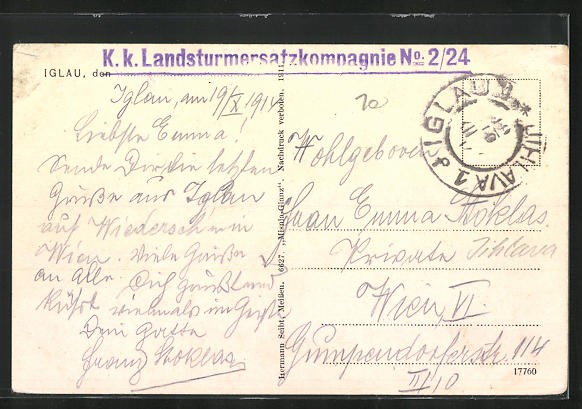 K. k. Landsturmersatzkompagnie No. 2/24
IGLAU, den
Iglau, am 19/X. 1914
Liebste Emma!
Sende Dir die letzten
Grüße aus Iglau
auf Wiedersehen in
Wien. Viele Grüße
an Alle. Dich grüßt und
küßt vielmals im Geiste
Dein Gatte
Franz Stoklas
Hermann Seibt, Meißen. 6627. „Mismis-Glanz“. Nachdruck verboten. 1911.
20
IGLAU 1 * JIHLAVA 1
Wohlgeboren
Frau Emma Stoklas.
Private Jihlava
Wien, VI.
Gumpendorferstr. 114
III/10
17760